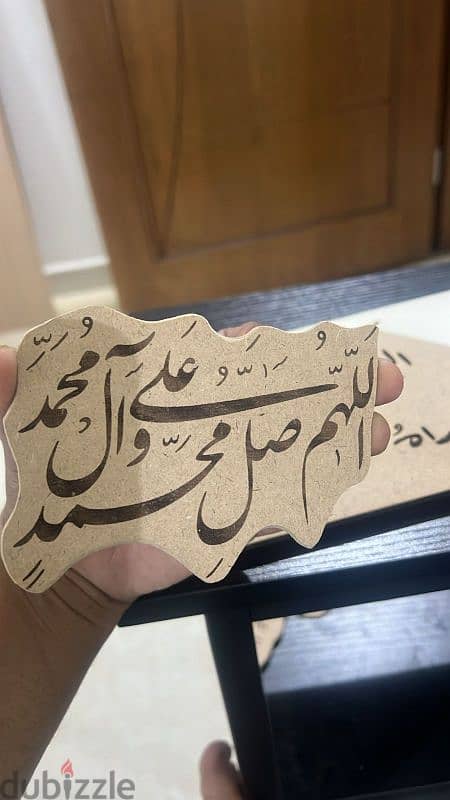 اللَّهُمَّ صَلِّ عَلَى مُحَمَّدٍ وَآلِ مُحَمَّدٍ
dubizzle